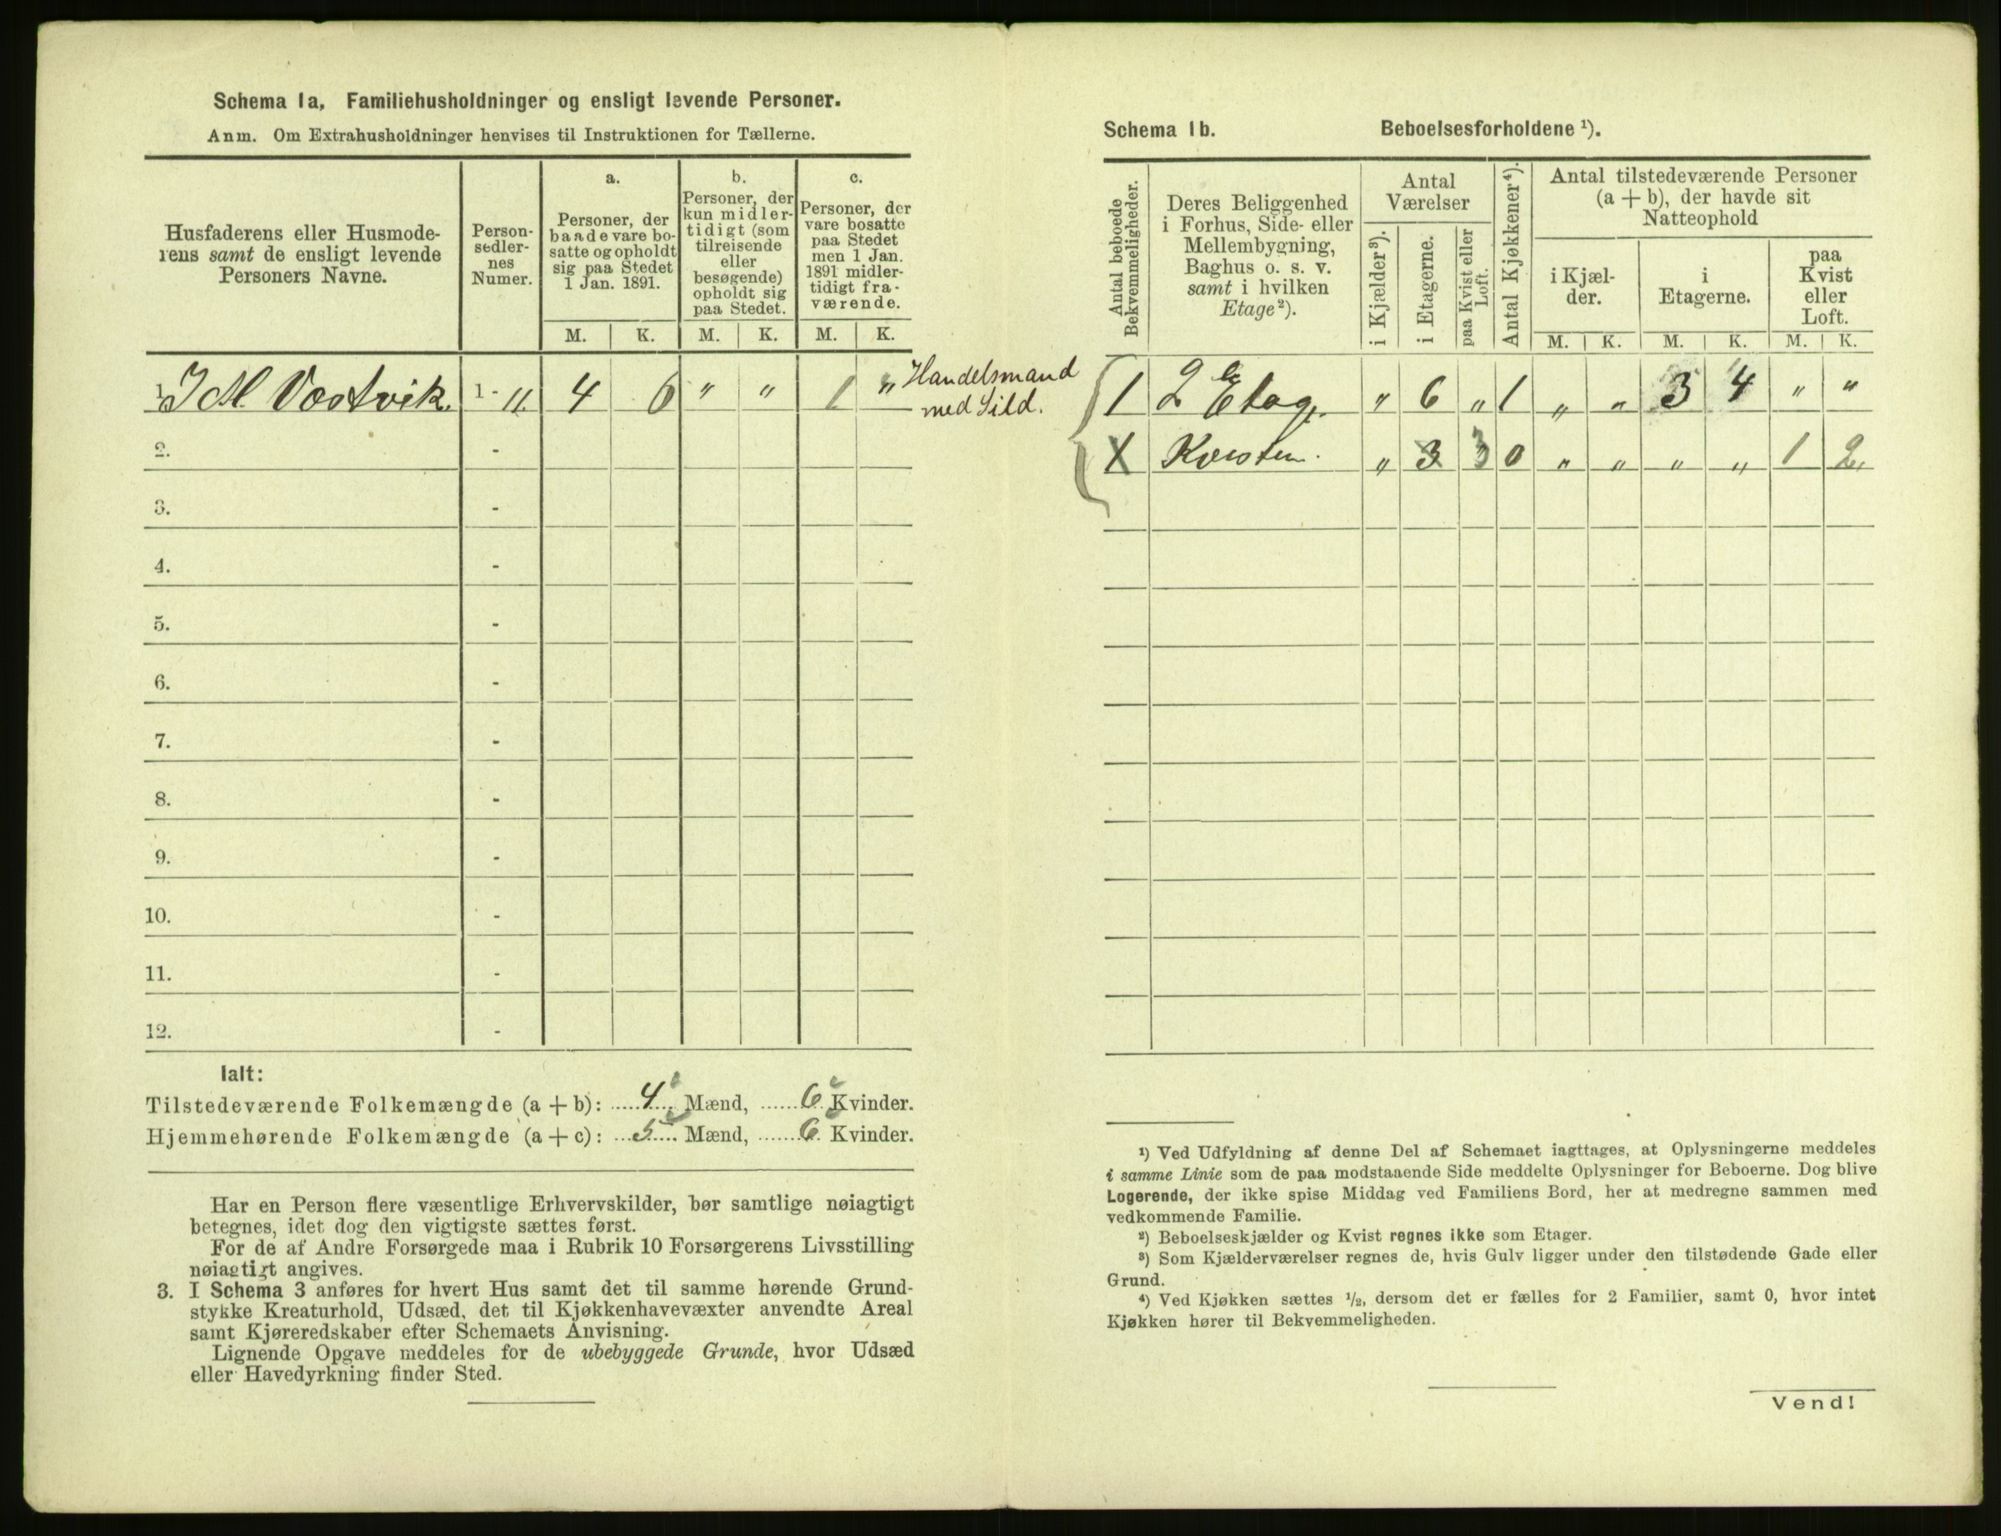 Schema 1a, Familiehusholdninger og ensligt levende Personer.
Anm. Om Extrahusholdninger henvises til Instruktionen for Tællerne.
Husfaderens eller Husmode-
rens samt de ensligt levende
Personers Navne.
Person-
sedler-
nes
Numer.
a.
Personer, der
baade vare bo-
satte og opholdt
sig paa Stedet
1 Jan. 1891.
M. K.
b.
Personer, der
kun midler-
tidigt (som
tilreisende
eller
besøgende)
opholdt sig
paa Stedet.
M. K.
c.
Personer, der
vare bosatte
paa Stedet
men 1 Jan.
1891 midler-
tidigt fra-
værende.
M. K.
1. I M. Vostvik. 1 - 11. 4 6 " " 1 " Handelsmand
med Sild.
2. -
3. -
4. -
5. -
6. -
7. -
8. -
9. -
10. -
11. -
12. -
Ialt:
Tilstedeværende Folkemængde (a + b): 4 Mænd, 6 Kvinder.
Hjemmehørende Folkemængde (a + c): 5 Mænd, 6 Kvinder.
Har en Person flere væsentlige Erhvervskilder, bør samtlige nøiagtigt
betegnes, idet dog den vigtigste sættes først.
For de af Andre Forsørgede maa i Rubrik 10 Forsørgerens Livsstilling
nøiagtigt angives.
3. I Schema 3 anføres for hvert Hus samt det til samme hørende Grund-
stykke Kreaturhold, Udsæd, det til Kjøkkenhavevæxter anvendte Areal
samt Kjøreredskaber efter Schemaets Anvisning.
Lignende Opgave meddeles for de ubebyggede Grunde, hvor Udsæd
eller Havedyrkning finder Sted.
Schema 1b. Beboelsesforholdene ¹).
Antal beboede
Bekvemmeligheder.
Deres Beliggenhed
i Forhus, Side- eller
Mellembygning,
Baghus o. s. v.
samt i hvilken
Etage²).
Antal
Værelser
i Kjælder³).
i Etagerne.
paa Kvist eller
Loft.
Antal Kjøkkener⁴).
Antal tilstedeværende Personer
(a + b), der havde sit
Natteophold
i Kjæl-
der.
i
Etagerne.
paa
Kvist
eller
Loft.
M. K. M. K. M. K.
1 2 Etag. " 6 " 1 " " 3 4 " "
X Kvisten. " 3 3 0 " " " " 1 2
¹) Ved Udfyldning af denne Del af Schemaet iagttages, at Oplysningerne meddeles
i samme Linie som de paa modstaaende Side meddelte Oplysninger for Beboerne. Dog blive
Logerende, der ikke spise Middag ved Familiens Bord, her at medregne sammen med
vedkommende Familie.
²) Beboelseskjælder og Kvist regnes ikke som Etager.
³) Som Kjælderværelser regnes de, hvis Gulv ligger under den tilstødende Gade eller
Grund.
⁴) Ved Kjøkken sættes ½, dersom det er fælles for 2 Familier, samt 0, hvor intet
Kjøkken hører til Bekvemmeligheden.
Vend!